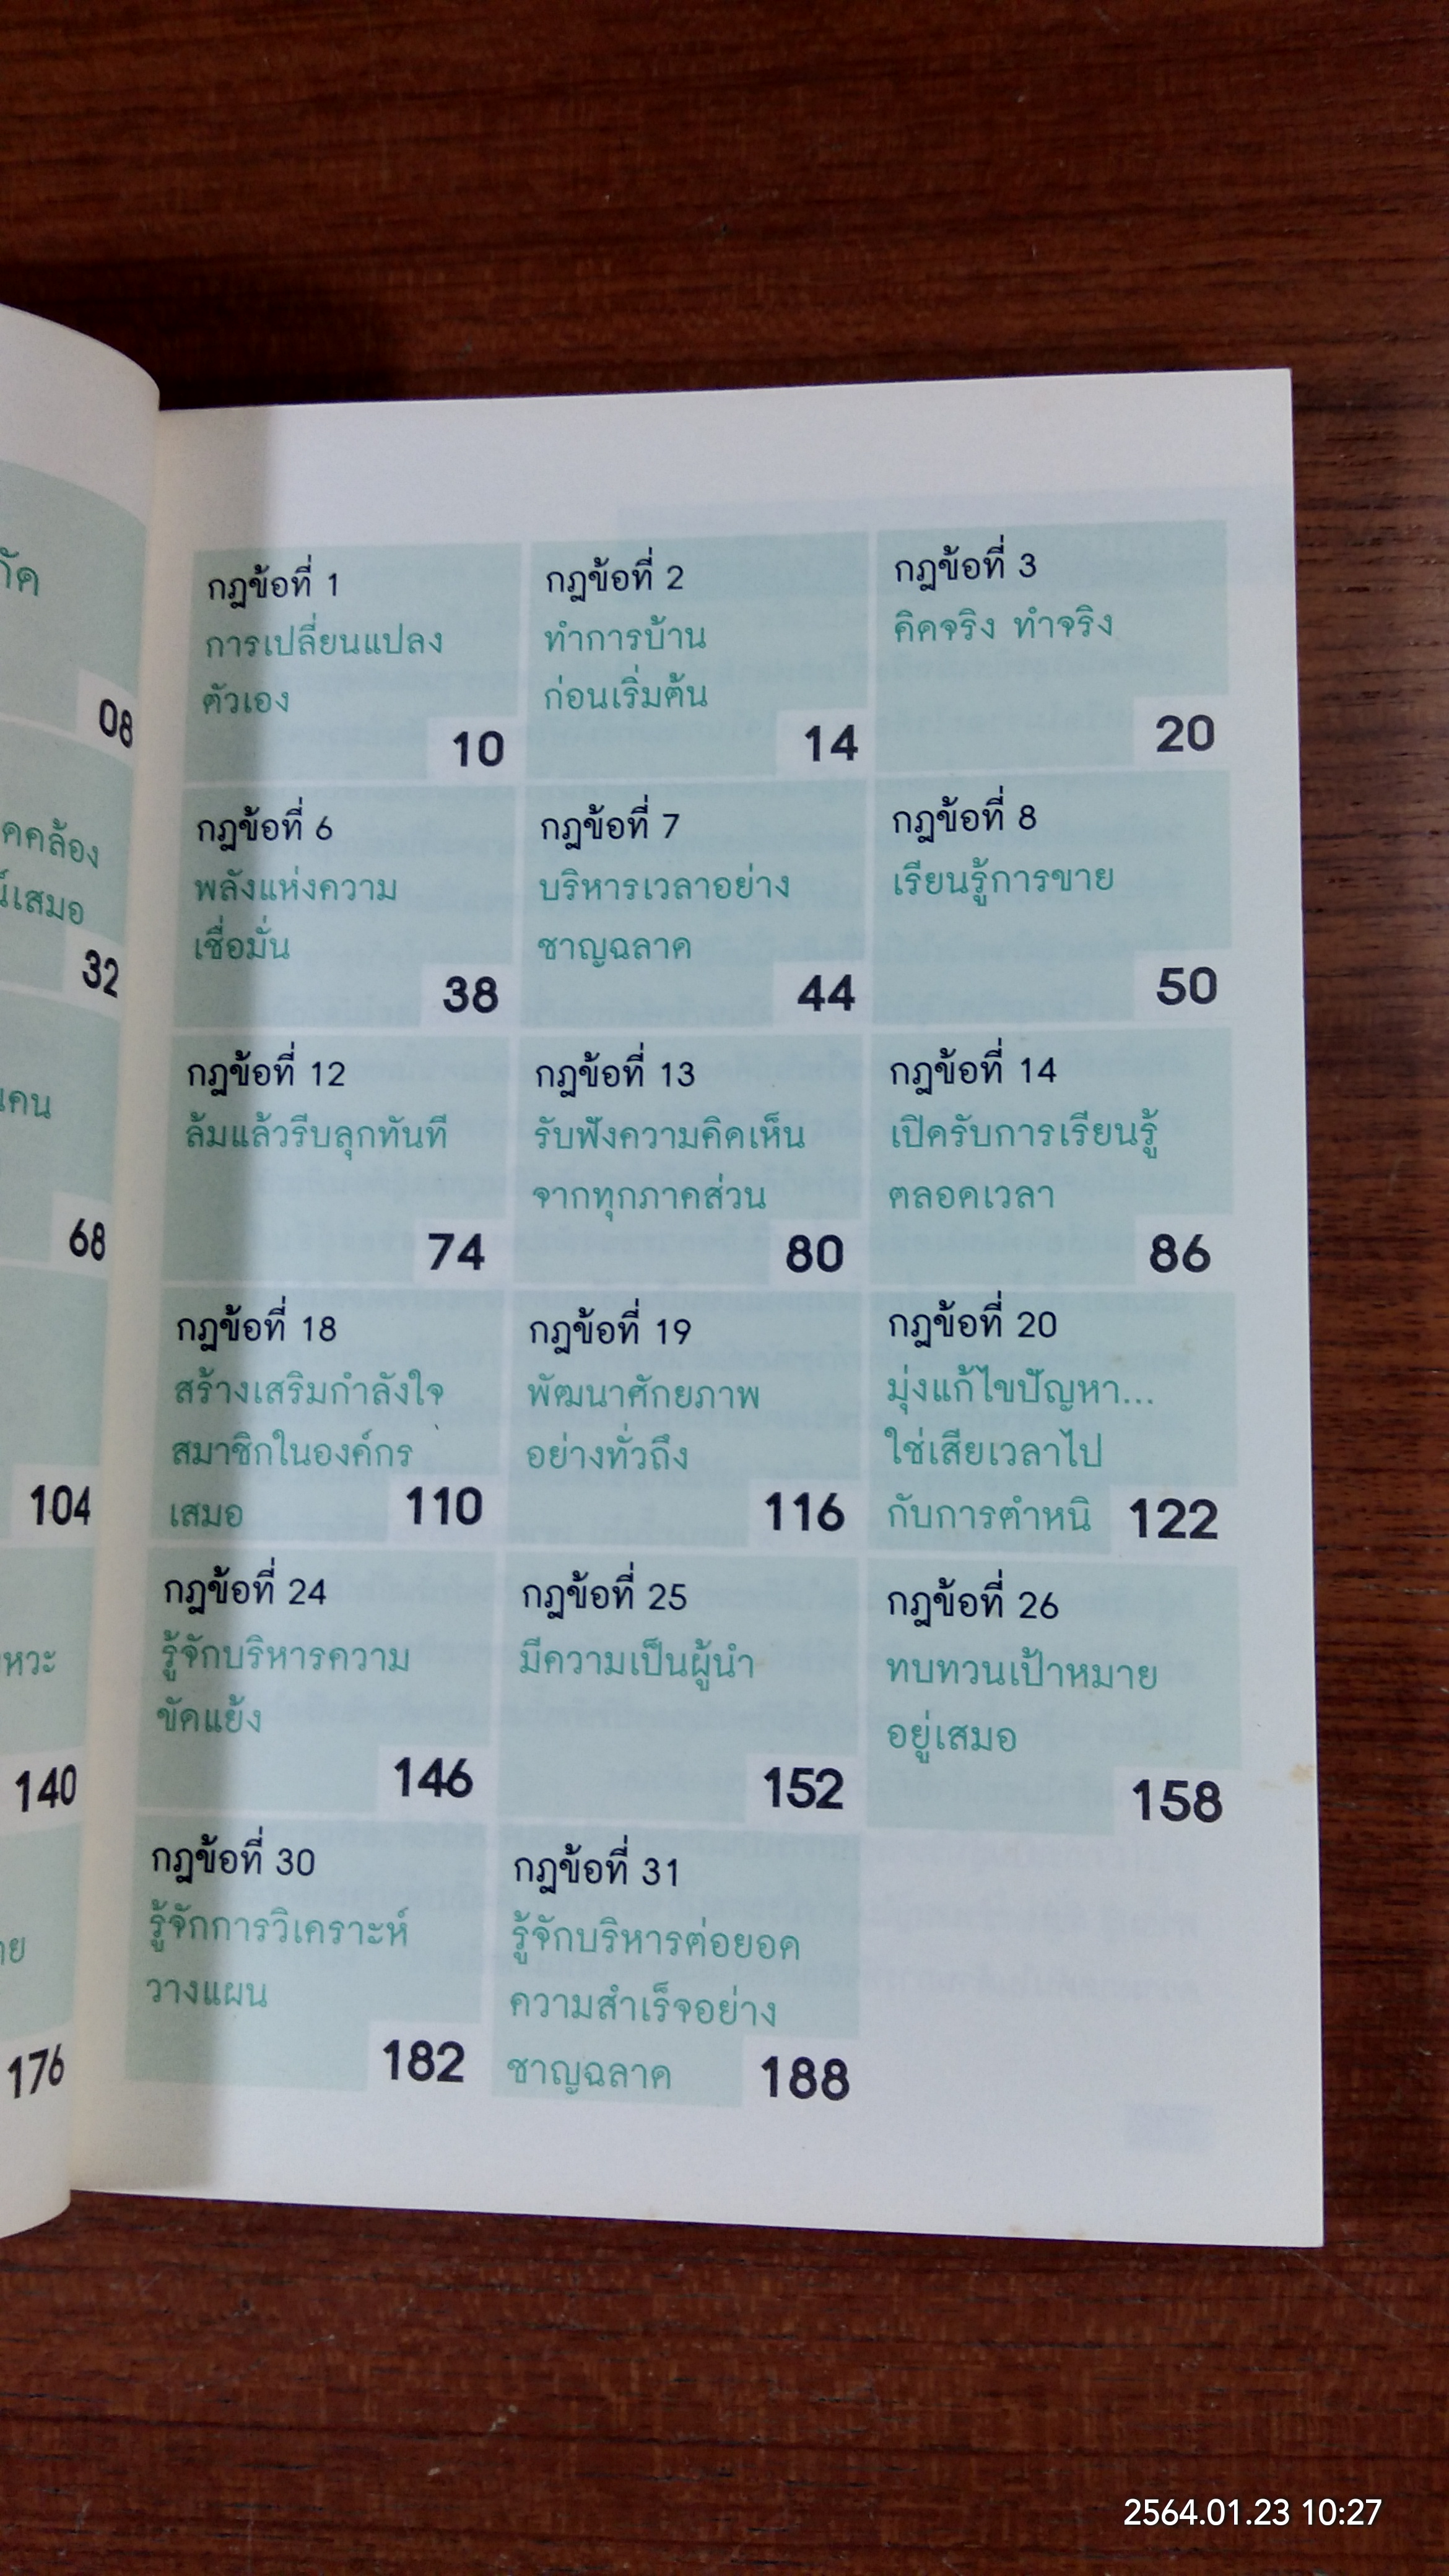 08
คคล้อง
เสมอ
32
68
104
หวะ
140
176
กฎข้อที่ 1
การเปลี่ยนแปลง
ตัวเอง
10
กฎข้อที่ 2
ทำการบ้าน
ก่อนเริ่มต้น
14
กฎข้อที่ 3
คิดจริง ทำจริง
20
กฎข้อที่ 6
พลังแห่งความ
เชื่อมั่น
38
กฎข้อที่ 7
บริหารเวลาอย่าง
ชาญฉลาด
44
กฎข้อที่ 8
เรียนรู้การขาย
50
กฎข้อที่ 12
ล้มแล้วรีบลุกทันที
74
กฎข้อที่ 13
รับฟังความคิดเห็น
จากทุกภาคส่วน
80
กฎข้อที่ 14
เปิดรับการเรียนรู้
ตลอดเวลา
86
กฎข้อที่ 18
สร้างเสริมกำลังใจ
สมาชิกในองค์กร
เสมอ 110
กฎข้อที่ 19
พัฒนาศักยภาพ
อย่างทั่วถึง
116
กฎข้อที่ 20
มุ่งแก้ไขปัญหา...
ใช่เสียเวลาไป
กับการตำหนิ 122
กฎข้อที่ 24
รู้จักบริหารความ
ขัดแย้ง
146
กฎข้อที่ 25
มีความเป็นผู้นำ
152
กฎข้อที่ 26
ทบทวนเป้าหมาย
อยู่เสมอ
158
กฎข้อที่ 30
รู้จักการวิเคราะห์
วางแผน
182
กฎข้อที่ 31
รู้จักบริหารต่อยอด
ความสำเร็จอย่าง
ชาญฉลาด 188
2564.01.23 10:27